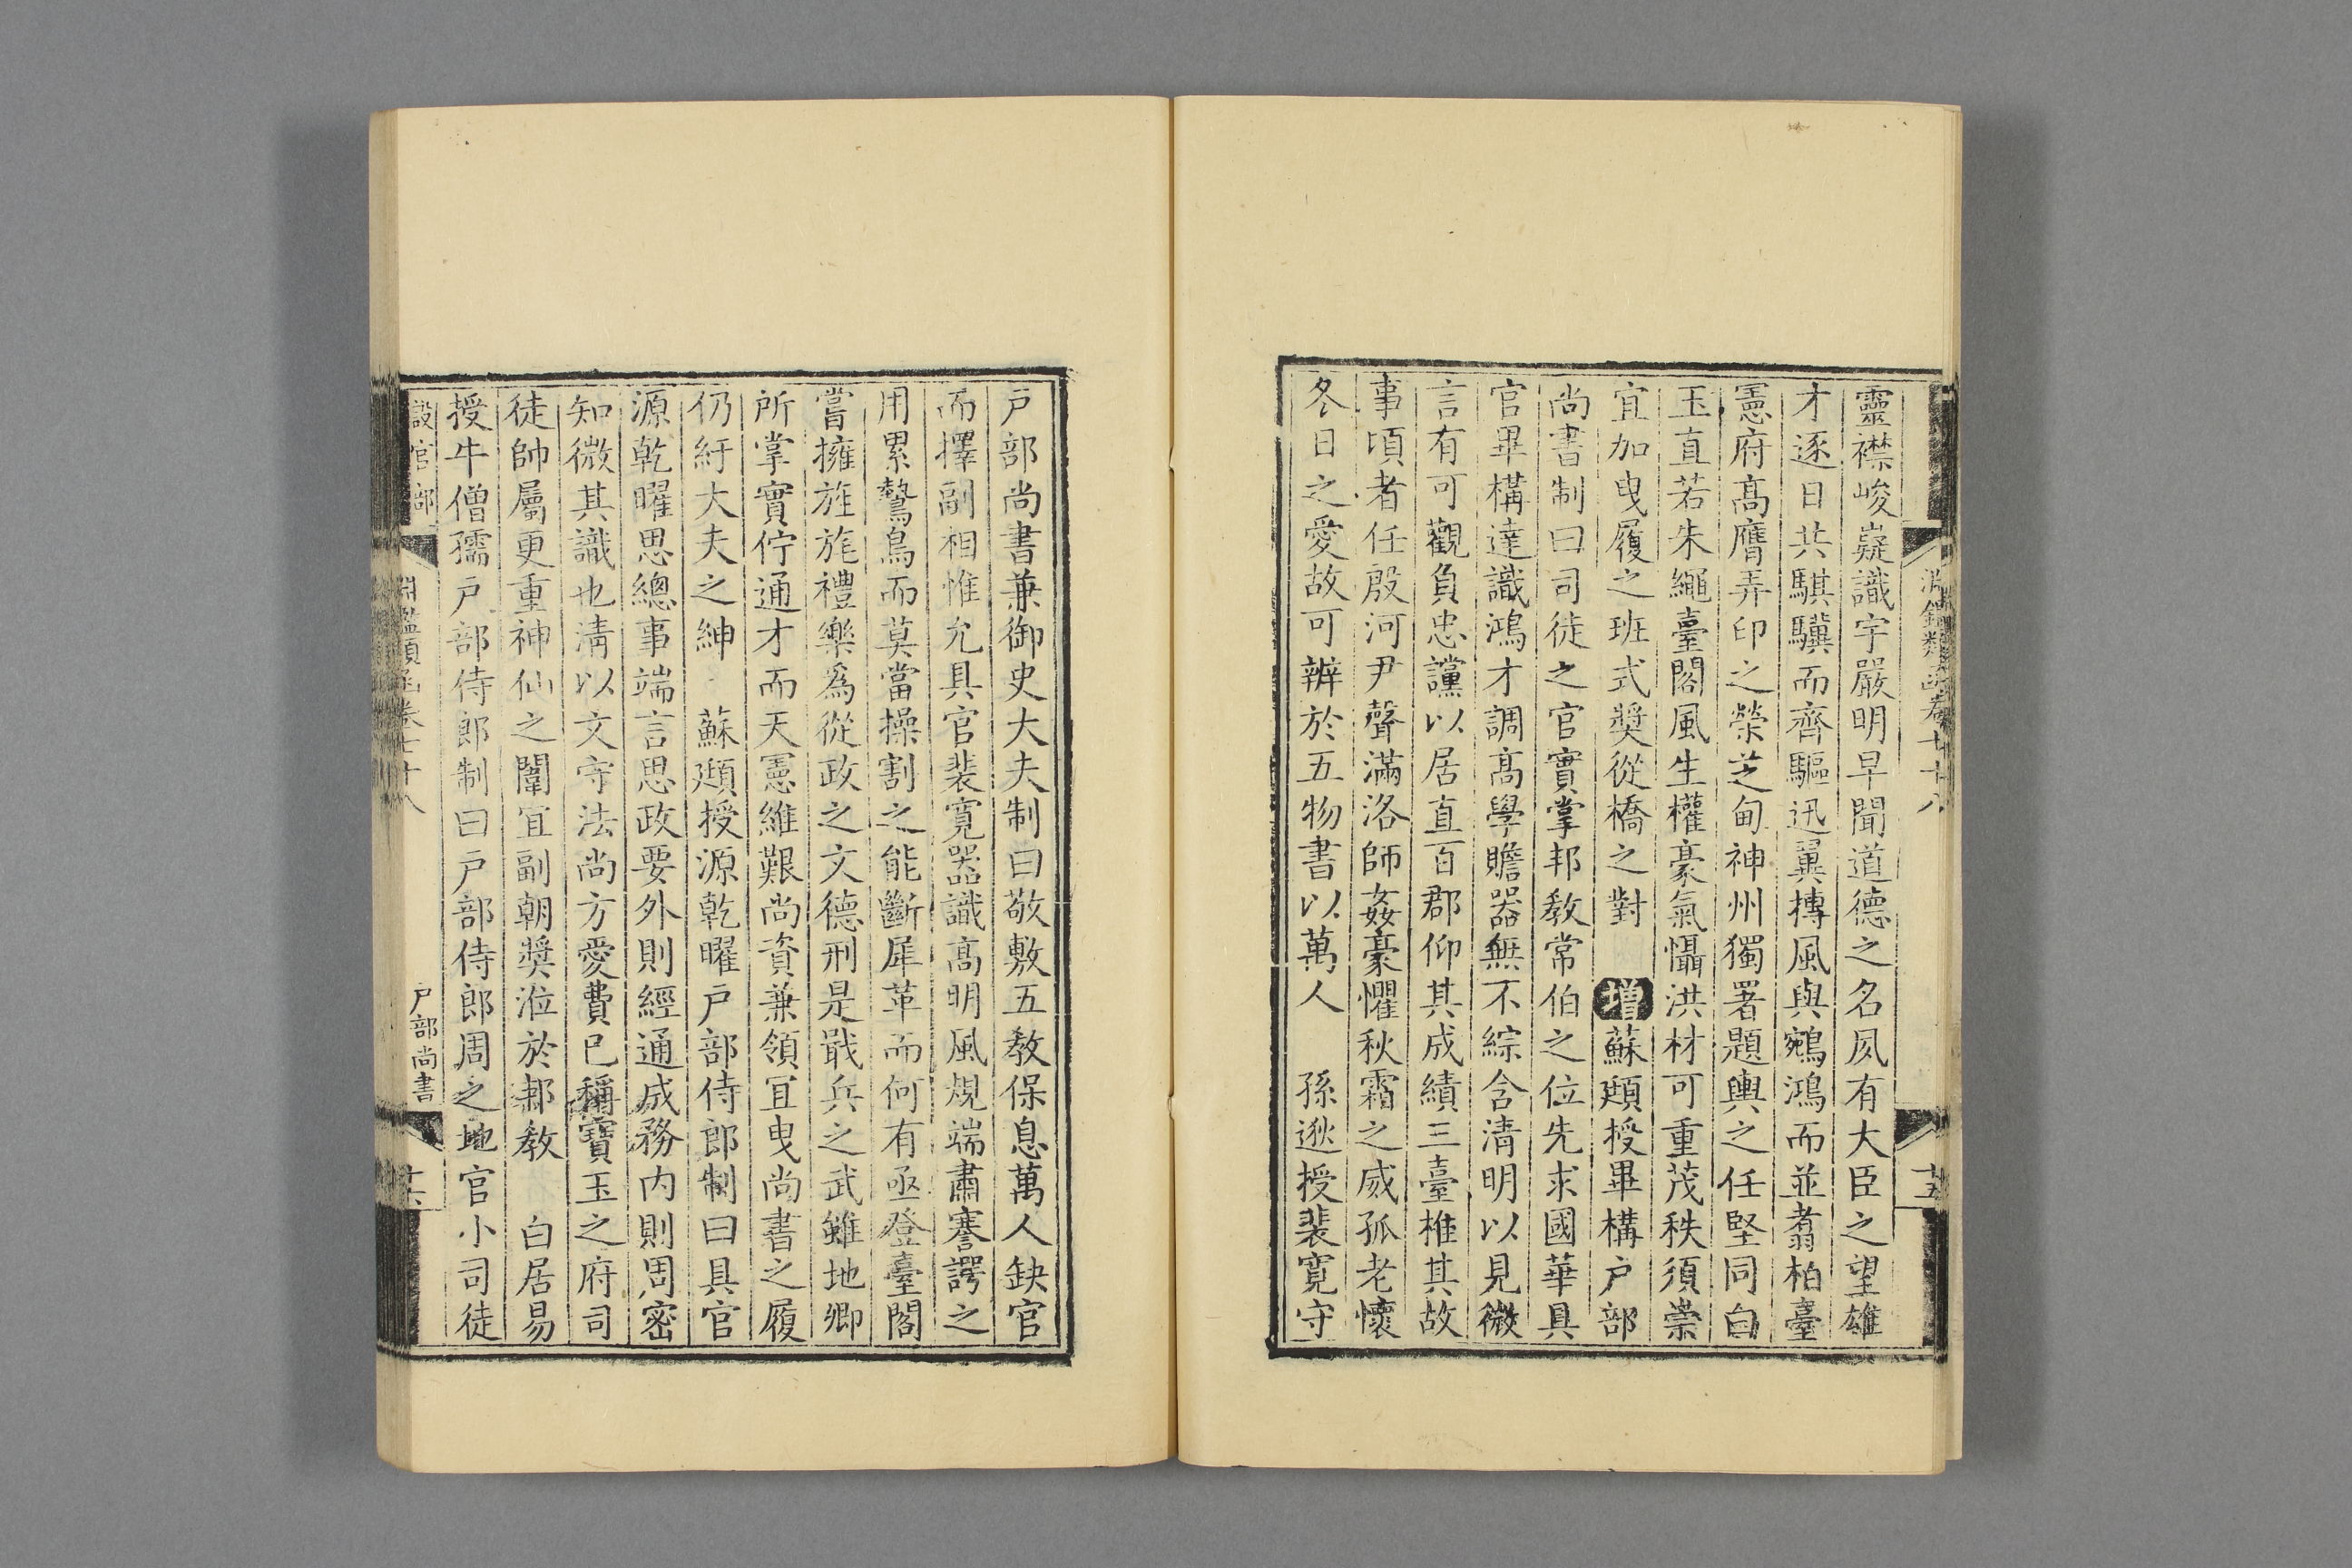 靈襟峻嶷識宇嚴明早聞道德之名夙有大臣之望雄
才逐日共騏驥而齊驅迅翼摶風與鵷鴻而並翥柏臺
憲府高膺弄印之榮芝甸神州獨署題輿之任堅同白
玉直若朱繩臺閣風生權豪氣懾洪材可重茂秩須崇
宜加曳履之班式奬從橋之對 增蘇頲授畢構戶部
尚書制曰司徒之官實掌邦教常伯之位先求國華具
官畢構達識鴻才調高學贍器無不綜含清明以見微
言有可觀負忠讜以居直百郡仰其成績三臺推其故
事頃者任殷河尹聲滿洛師姦豪懼秋霜之威孤老懷
冬日之愛故可辨於五物書以萬人 孫逖授裴寛守
戶部尚書兼御史大夫制曰敬敷五教保息萬人缺官
而擇副相惟允具官裴寛器識高明風規端肅謇諤之
用累鷙鳥而莫當操割之能斷犀革而何有亟登臺閣
嘗擁旌旄禮樂爲從政之文德刑是戢兵之武雖地卿
所掌實佇通才而天憲維艱尚資兼領宜曳尚書之履
仍紆大夫之紳 蘇頲授源乾曜戶部侍郎制曰具官
源乾曜思總事端言思政要外則經通成務内則周密
知微其識也淸以文守法尚方愛費已稱寶玉之府司
徒帥屬更重神仙之闈宜副朝奬涖於邦教 白居易
授牛僧孺戶部侍郎制曰戶部侍郎周之地官小司徒
設官部 淵鑑類函卷七十八 戶部尚書 十六